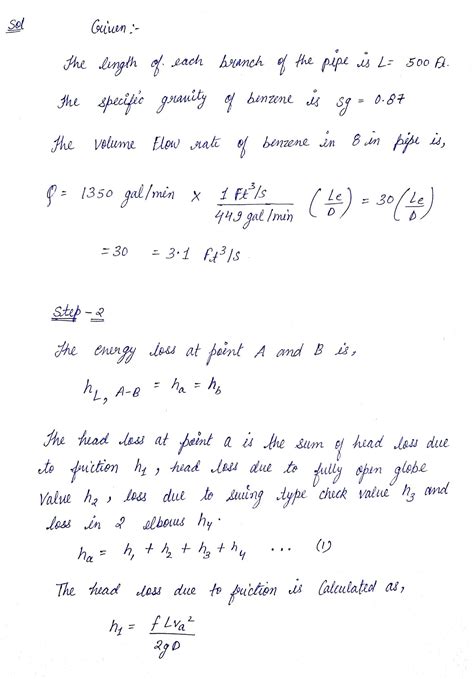 Sol Given :-
The length of each branch of the pipe is L = 500 ft.
The specific gravity of benzene is sg = 0.87
The volume flow rate of benzene in 8 in pipe is,
Q = 1350 gal/min × \frac{1 ft^3/s}{449 gal/min} (\frac{Le}{D}) = 30 (\frac{Le}{D})
= 30 = 3.1 ft^3/s
Step-2
The energy loss at point A and B is,
h_{L, A-B} = h_a = h_b
The head loss at point a is the sum of head loss due
to friction h_1, head loss due to fully open globe
value h_2, loss due to swing type check value h_3 and
loss in 2 elbows h_4.
h_a = h_1 + h_2 + h_3 + h_4 ... (1)
The head loss due to friction is Calculated as,
h_1 = \frac{f L v_a^2}{2gD}